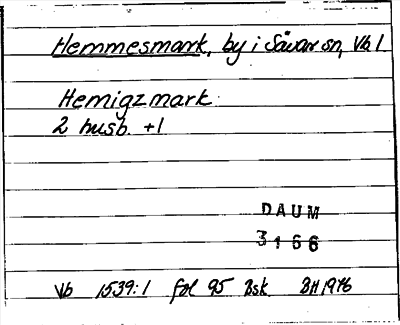 Hemmesmark, by i Sävar sn, Vb l
Hemigzmark
2 husb. +1
DAUM
3166
Vb 1539:1 fol 95 Bsk BH 1976